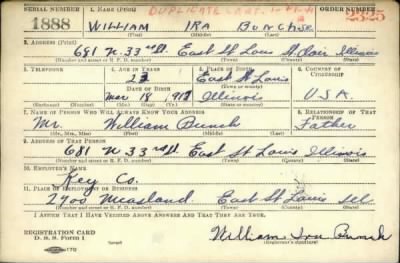 SERIAL NUMBER 1. NAME (Print) DUPLICATE
1888 WILLIAM IRA BUNCH SR. 2325
(First) (Middle) (Last)
2. ADDRESS (Print)
681 N. 33rd St. East St Louis St. Clair Illinois
(Number and street or R. F. D. number) (Town) (County) (State)
3. TELEPHONE 4. AGE IN YEARS 5. PLACE OF BIRTH 6. COUNTRY OF CITIZENSHIP
23 East St Louis
DATE OF BIRTH (Town or county)
Mar 18 1917 Illinois U.S.A.
(Exchange) (Number) (Mo.) (Day) (Yr.) (State or country)
7. NAME OF PERSON WHO WILL ALWAYS KNOW YOUR ADDRESS 8. RELATIONSHIP OF THAT PERSON
Mr William Bunch Father
(Mr., Mrs., Miss) (First) (Middle) (Last)
9. ADDRESS OF THAT PERSON
681 N. 33rd St. East St Louis Illinois
(Number and street or R. F. D. number) (Town) (County) (State)
10. EMPLOYER'S NAME
Key Co.
11. PLACE OF EMPLOYMENT OR BUSINESS
2700 East St Louis Ill
(Number and street or R. F. D. number) (Town) (County) (State)
I AFFIRM THAT I HAVE VERIFIED ABOVE ANSWERS AND THAT THEY ARE TRUE.
REGISTRATION CARD
D. S. S. Form 1 William Ira Bunch
(Registrant's signature)